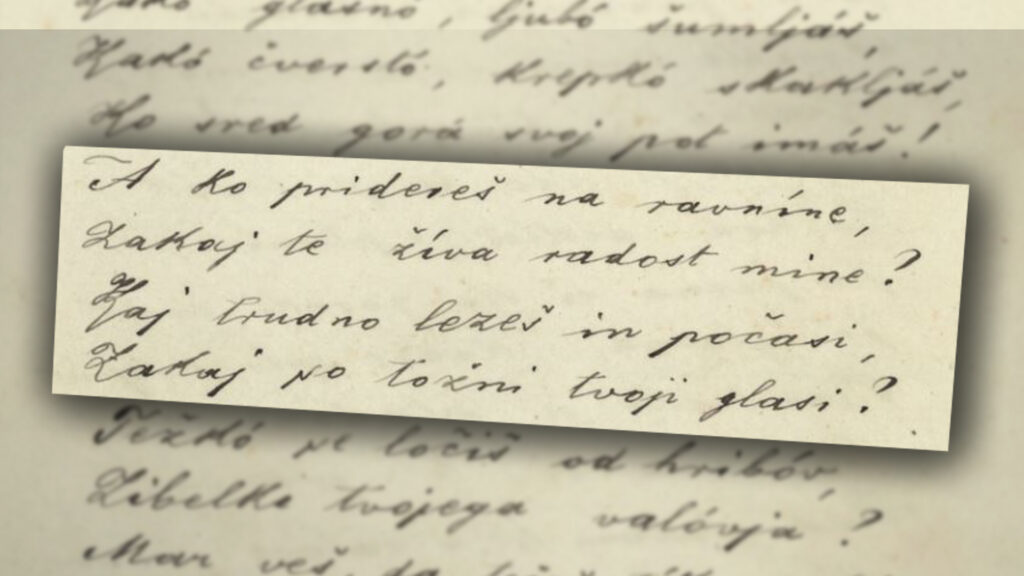 Kakó glasnó, ljubó šumljáš,
Kakó čverstó, krepkó skakljáš,
Ko sred gorá svoj pot imáš!
A ko pridereš na ravníne,
Zakaj te žíva radost mine?
Kaj trudno lezeš in počasi,
Zakaj so tožni tvoji glasi?
Težkó se ločiš od hribóv,
Zibelke tvojega valóvja?
Mar veš, da